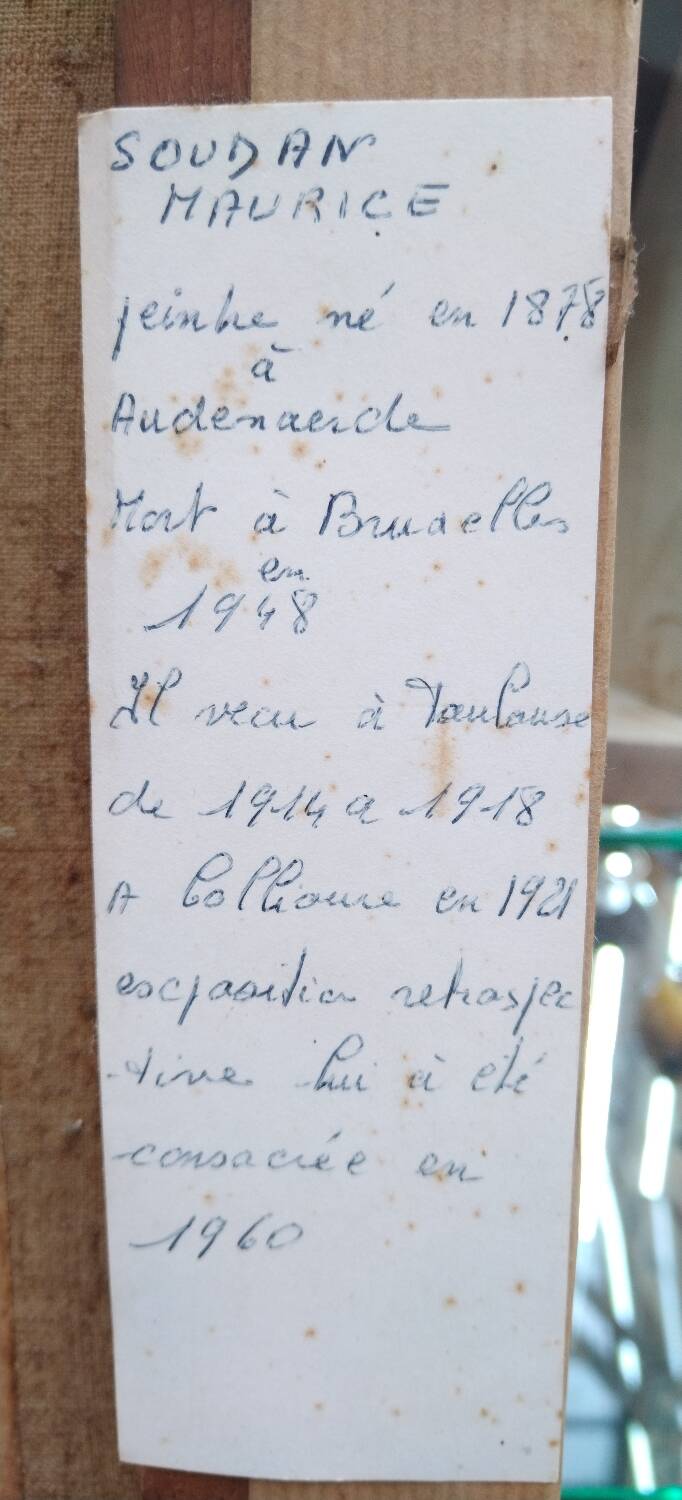 SOUDAN
MAURICE
peintre né en 1878
à
Audenaerde
Mort à Bruxelles
en
1948
Il vecu à Toulouse
de 1914 a 1918
A Collioure en 1921
exposition retrospec
tive lui à été
consacrée en
1960